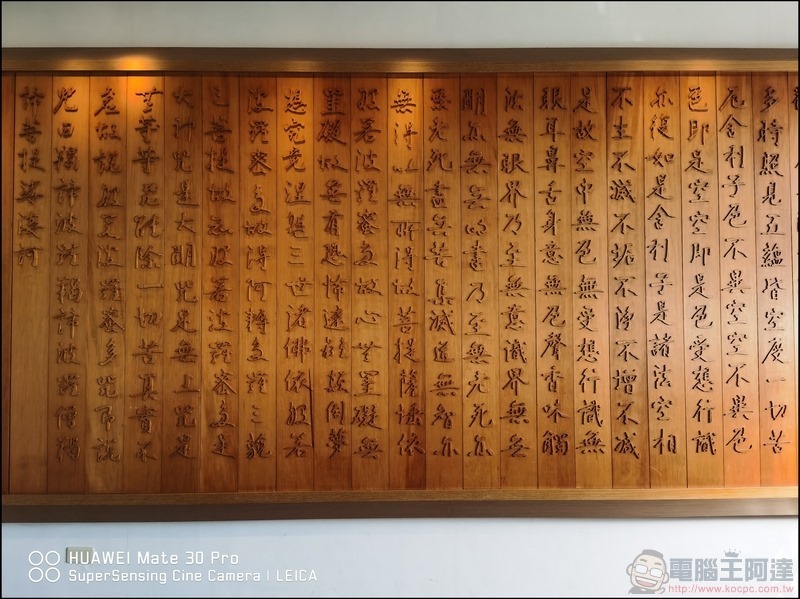 多時照見五蘊皆空度一切苦
厄舍利子色不異空空不異色
色即是空空即是色受想行識
亦復如是舍利子是諸法空相
不生不滅不垢不淨不增不減
是故空中無色無受想行識無
眼耳鼻舌身意無色聲香味觸
法無眼界乃至無意識界無無
明亦無無明盡乃至無老死亦
無老死盡無苦集滅道無智亦
無得以無所得故菩提薩埵依
般若波羅蜜多故心無罣礙無
罣礙故無有恐怖遠離顛倒夢
想究竟涅槃三世諸佛依般若
波羅蜜多故得阿耨多羅三藐
三菩提故知般若波羅蜜多是
大神咒是大明咒是無上咒是
無等等咒能除一切苦真實不
虛故說般若波羅蜜多咒即說
咒曰揭諦波羅揭諦波羅僧揭
諦菩提娑婆訶
HUAWEI Mate 30 Pro
SuperSensing Cine Camera | LEICA
電腦王阿達
http://www.kocpc.com.tw